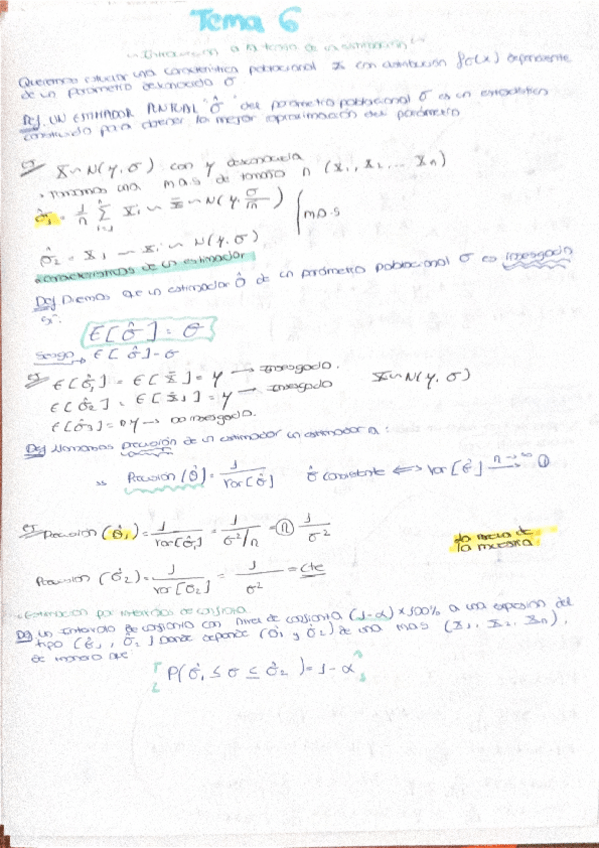 Tema 6
Introducción a la teoría de la estimación
Queremos estudiar una característica poblacional X con distribución fθ(x) dependiente
de un parámetro desconocido θ.
Def. UN ESTIMADOR PUNTUAL "θ̂" del parámetro poblacional θ es un estadístico
construido para obtener la mejor aproximación del parámetro
ej X ~ N(μ, σ) con μ desconocida
• Tomamos una m.a.s de tamaño n (X₁, X₂ ... Xn)
θ̂₁ = 1/n Σ Xi ~ X̄ ~ N(μ, σ/√n) m.a.s
θ̂₂ = X₁ ~ Xi ~ N(μ, σ)
características de un estimador
Def Diremos que un estimador θ̂ de un parámetro poblacional θ es insesgado
si:
E[θ̂] = θ
Sesgo → E[θ̂] - θ
ej E[θ̂₁] = E[X̄] = μ → Insesgado.
E[θ̂₂] = E[X₁] = μ → Insesgado X ~ N(μ, σ)
E[θ̂₃] = μ → no insesgado.
Def llamamos precisión de un estimador un estimador a:
Precisión (θ̂) = 1/Var[θ̂] θ̂ consistente ⟺ Var[θ̂] n→∞ 0
ej Precisión (θ̂₁) = 1/Var[θ̂₁] = 1/σ²/n = n 1/σ²
la
la muestra
Precisión (θ̂₂) = 1/Var[θ̂₂] = 1/σ² = cte
Estimación por intervalos de confianza
Def un Intervalo de confianza con Nivel de confianza (1-α) × 100% a una expresión del
tipo (θ̂₁, θ̂₂) Donde depende (θ̂₁ y θ̂₂) de una mas (X₁, X₂ ... Xn),
de manera que
P(θ̂₁ ≤ θ ≤ θ̂₂) = 1 - α